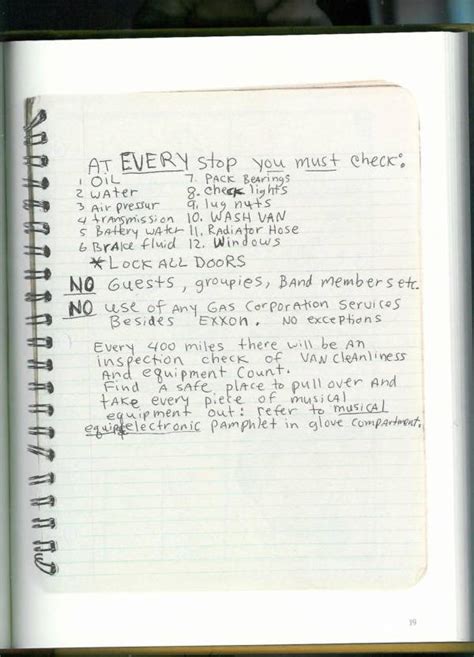 AT EVERY stop you must check:
1 OIL 7. PACK Bearings
2 water 8. check lights
3 Air pressur 9. lug nuts
4 transmission 10. WASH VAN
5 Battery water 11. Radiator Hose
6. Brake fluid 12. Windows
*LOCK ALL DOORS
NO Guests, groupies, Band members etc.
NO use of Any GAS Corporation Services
Besides EXXON. NO exceptions
Every 400 miles there will be An
inspection check of VAN cleanliness
And equipment Count.
Find A safe place to pull over And
take every piece of musical
equipment out: refer to musical
equip electronic pamphlet in glove compartment.
19